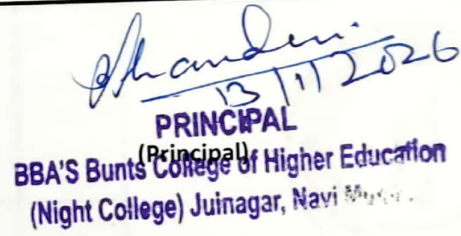 13/1/2026
PRINCIPAL
(Principal)
BBA'S Bunts College of Higher Education
(Night College) Juinagar, Navi